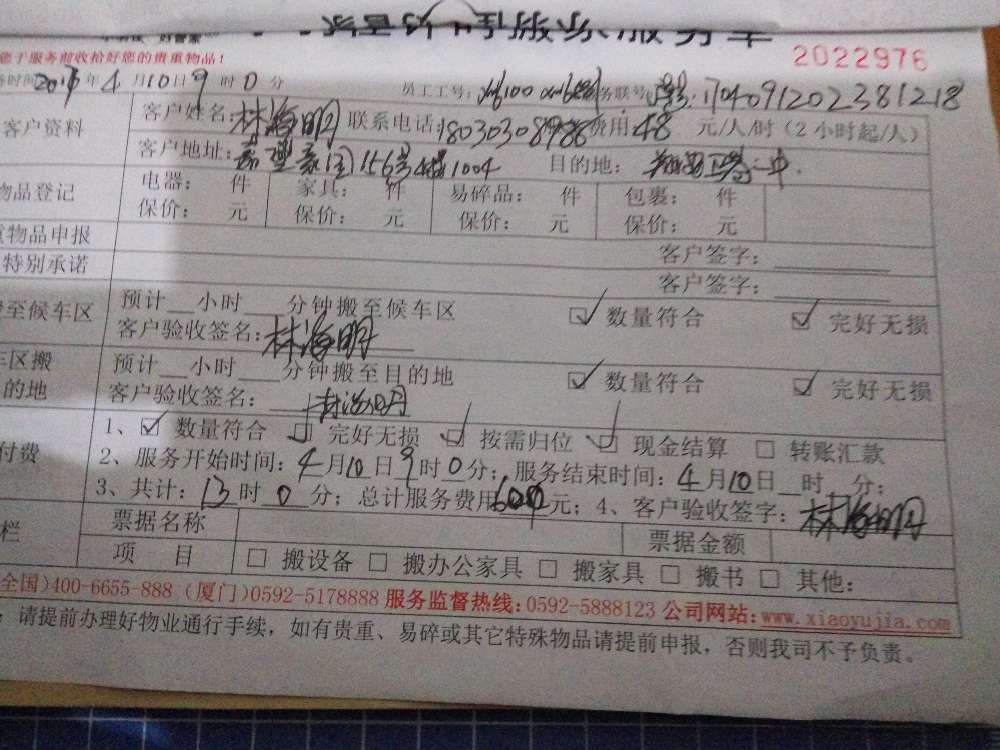 2022976
您于服务前收拾好您的贵重物品！
时间2017年4月10日9时0分 员工工号: 务联号 1704091202381218
客户资料 客户姓名:林海明 联系电话:18030308988 费用:48元/人/时（2小时起/人）
客户地址: 156号 1004 目的地: 中.
物品登记 电器： 件 家具： 件 易碎品： 件 包裹： 件
保价： 元 保价： 元 保价： 元 保价： 元
物品申报 客户签字：
特别承诺 客户签字：
至候车区 预计__小时___分钟搬至候车区 ☑ 数量符合 ☑ 完好无损
客户验收签名:林海明
车区搬 预计__小时___分钟搬至目的地 ☑ 数量符合 ☑ 完好无损
的地 客户验收签名：林海明
付费 1、☑ 数量符合 ☑ 完好无损 ☑ 按需归位 ☑ 现金结算 □ 转账汇款
2、服务开始时间:4月10日9时0分; 服务结束时间:4月10日_时_分;
3、共计:13时0分; 总计服务费用600元; 4、客户验收签字:林海明
栏 票据名称 票据金额
项 目 □ 搬设备 □ 搬办公家具 □ 搬家具 □ 搬书 □ 其他:
全国)400-6655-888 (厦门)0592-5178888 服务监督热线:0592-5888123 公司网站:www.xiaoyujia.com
：请提前办理好物业通行手续，如有贵重、易碎或其它特殊物品请提前申报，否则我司不予负责。